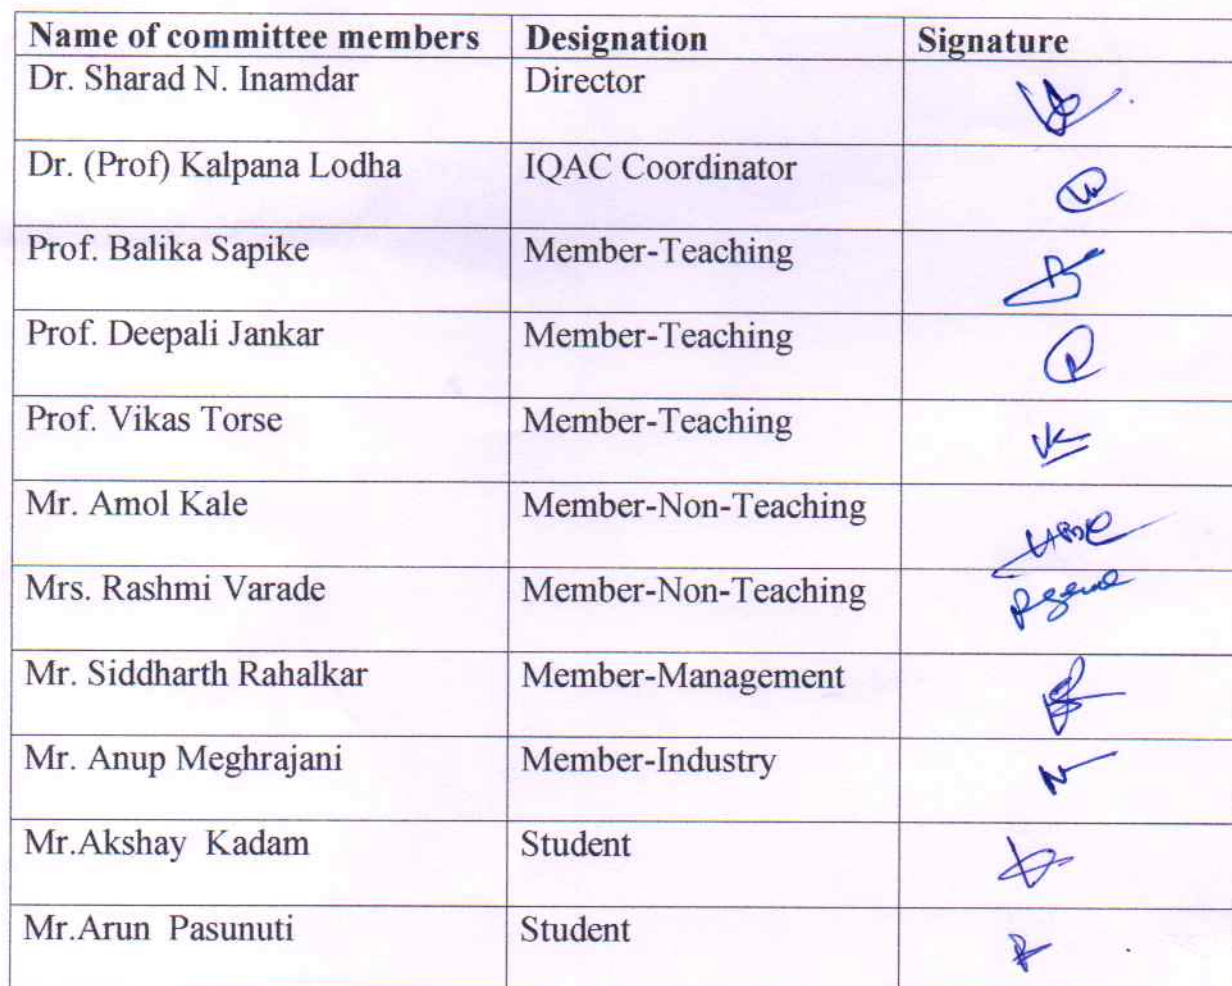 Name of committee members Designation Signature
Dr. Sharad N. Inamdar Director
Dr. (Prof) Kalpana Lodha IQAC Coordinator
Prof. Balika Sapike Member-Teaching
Prof. Deepali Jankar Member-Teaching
Prof. Vikas Torse Member-Teaching
Mr. Amol Kale Member-Non-Teaching
Mrs. Rashmi Varade Member-Non-Teaching
Mr. Siddharth Rahalkar Member-Management
Mr. Anup Meghrajani Member-Industry
Mr.Akshay Kadam Student
Mr.Arun Pasunuti Student